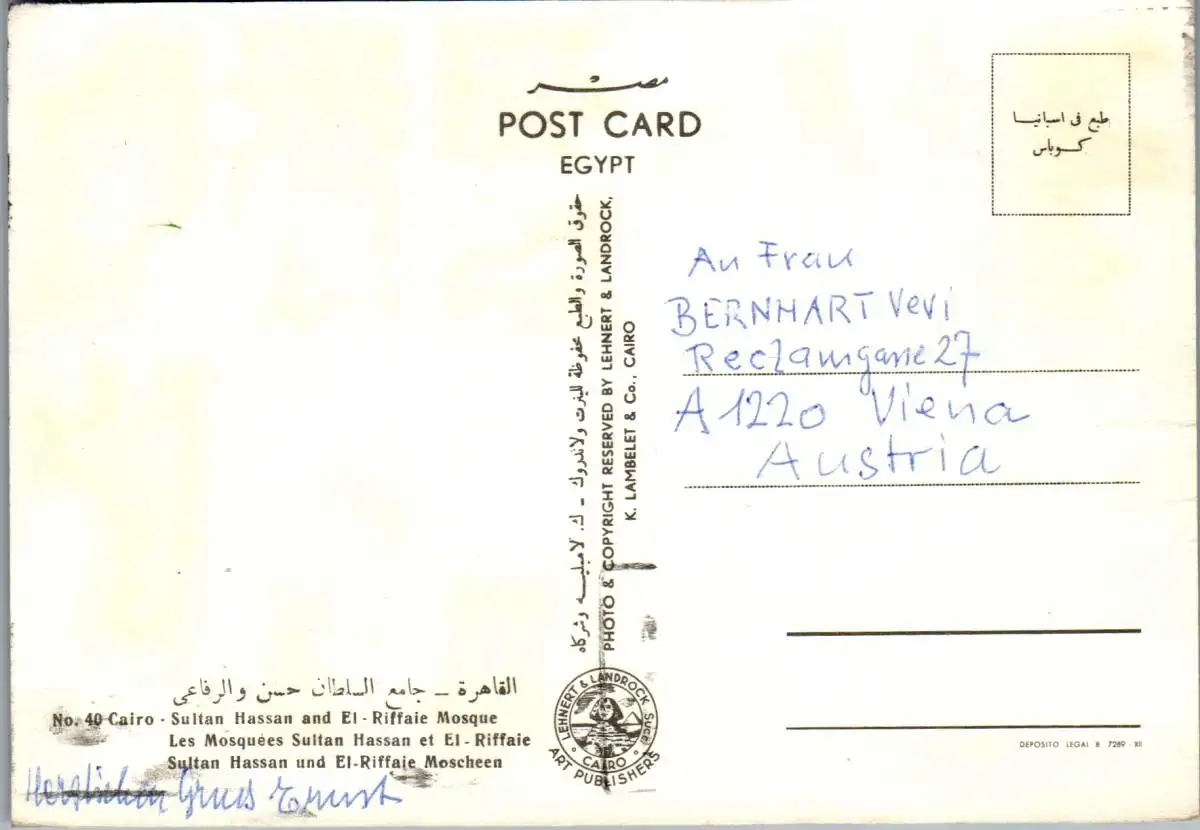 مصر
POST CARD
EGYPT
طبع فى اسبانيا
كوباس
حقوق الصورة والطبع محفوظة للينرت ولاندروك - ك. لامبليه وشركاه
PHOTO & COPYRIGHT RESERVED BY LEHNERT & LANDROCK,
K. LAMBELET & Co., CAIRO
An Frau
BERNHART Vevi
Reclamgasse 27
A 1220 Viena
Austria
القاهرة – جامع السلطان حسن والرفاعى
No. 40 Cairo - Sultan Hassan and El-Riffaie Mosque
Les Mosquées Sultan Hassan et El-Riffaie
Sultan Hassan und El-Riffaie Moscheen
Herzlichen Gruss Ernst
LEHNERT & LANDROCK Succ.
CAIRO
ART PUBLISHERS
DEPOSITO LEGAL B 7289 - XII